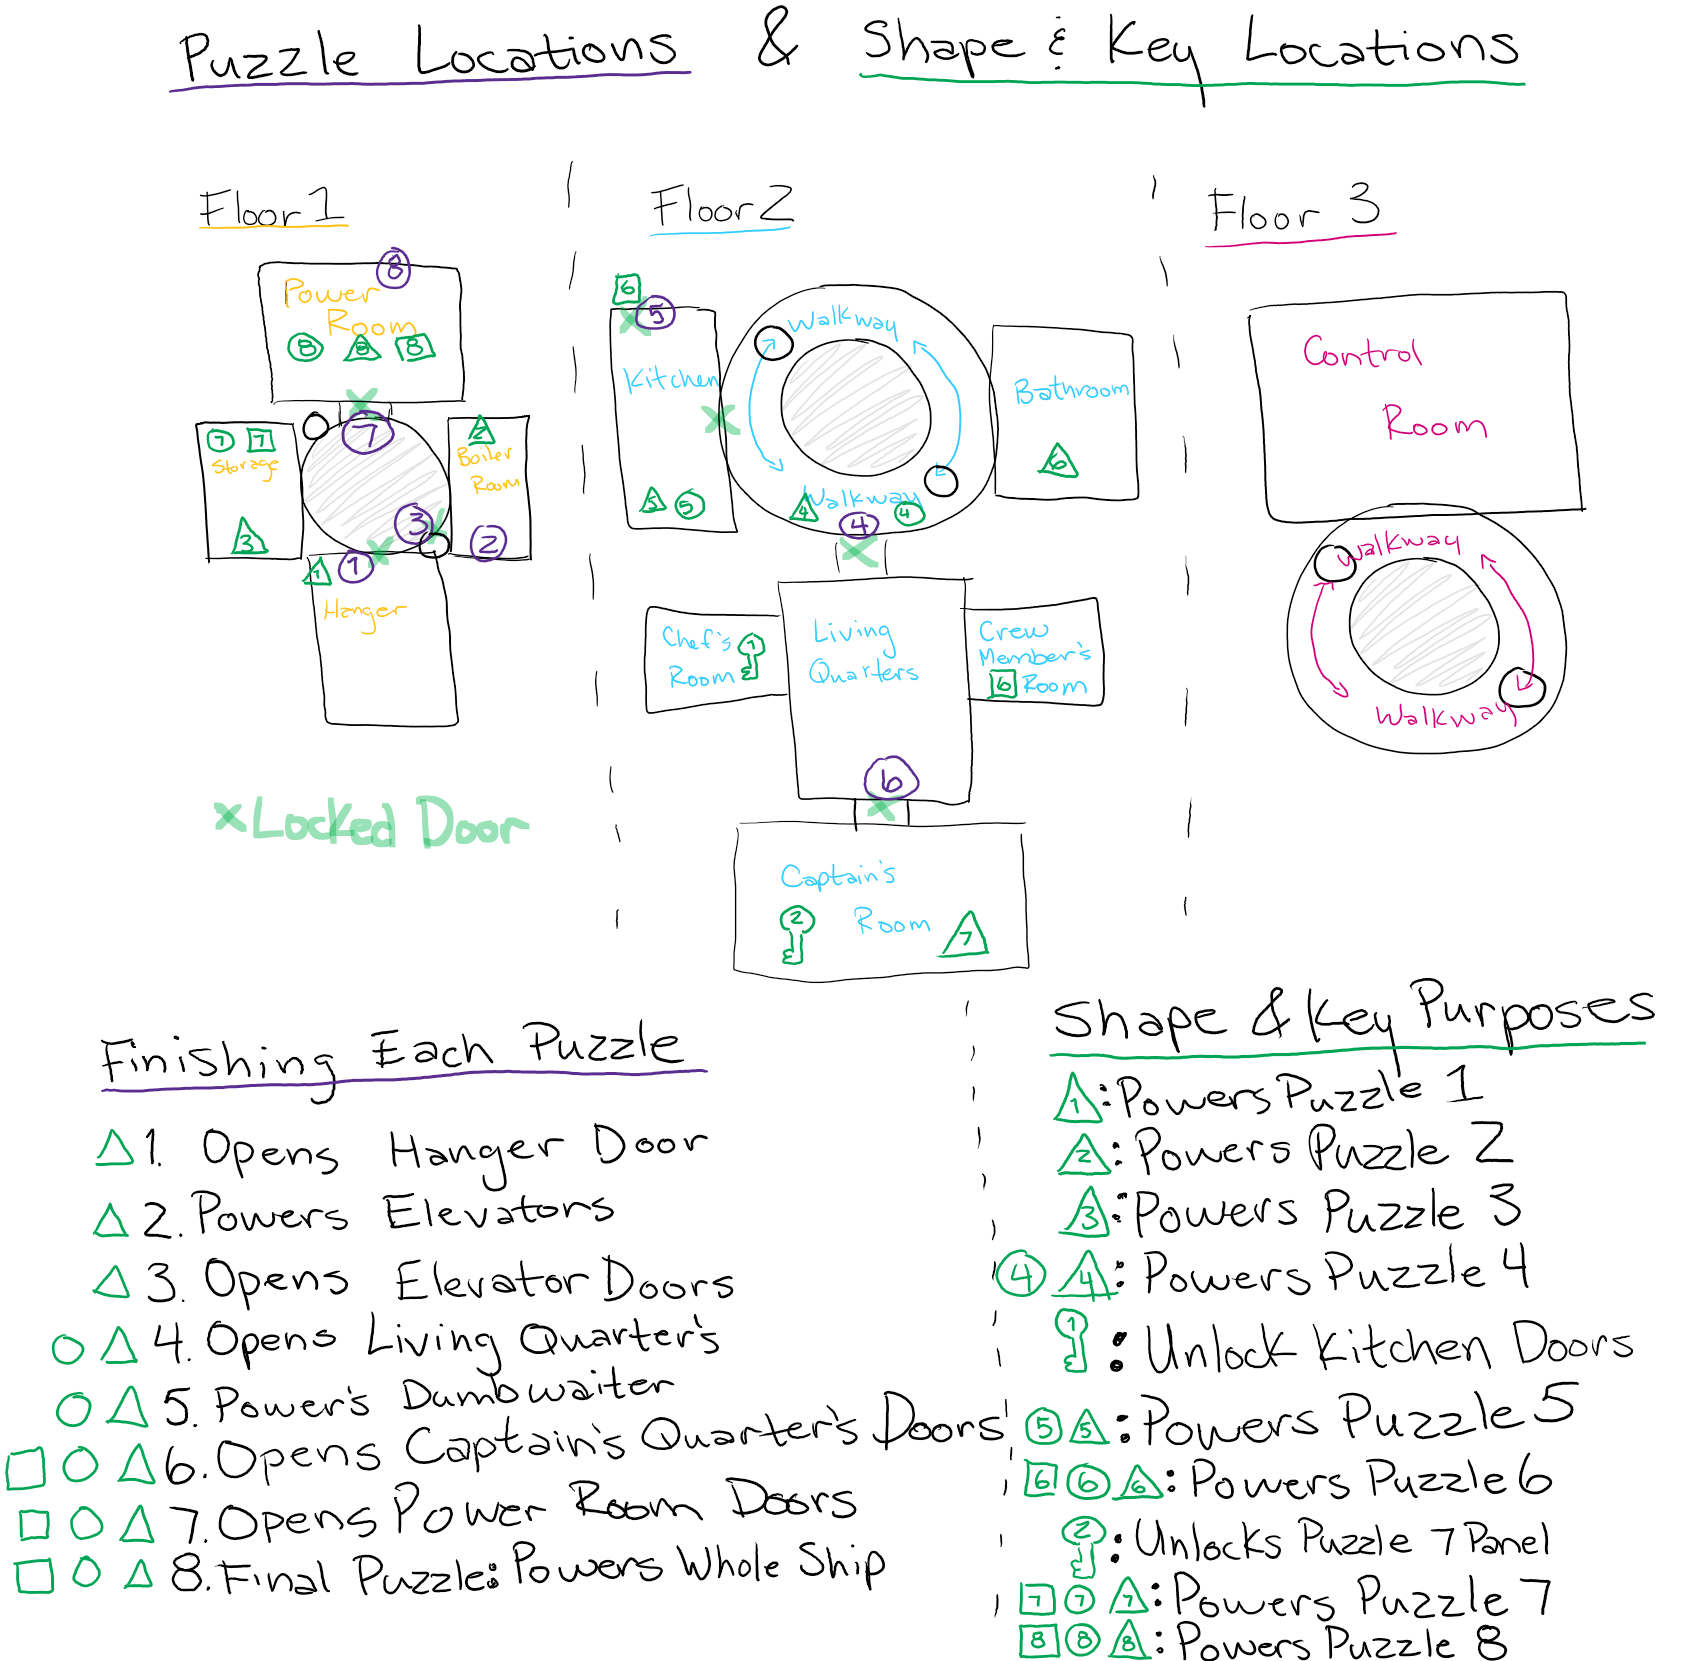 Puzzle Locations & Shape & Key Locations
Floor 1
8
Power
Room
8 8 8
7
7 7
Storage
3
2
Boiler
Room
3
2
1 1
Hanger
× Locked Door
Floor 2
6
5
Kitchen
5 5
Walkway
Walkway
4 4 4
Bathroom
6
Chef's
Room
1
Living
Quarters
Crew
Member's
6 Room
6
Captain's
Room
2
7
Floor 3
Control
Room
Walkway
Walkway
Finishing Each Puzzle
1. Opens Hanger Door
2. Powers Elevators
3. Opens Elevator Doors
4. Opens Living Quarter's
5. Power's Dumbwaiter
6. Opens Captain's Quarter's Doors
7. Opens Power Room Doors
8. Final Puzzle: Powers Whole Ship
Shape & Key Purposes
1 : Powers Puzzle 1
2 : Powers Puzzle 2
3 : Powers Puzzle 3
4 4 : Powers Puzzle 4
1 : Unlock Kitchen Doors
5 5 : Powers Puzzle 5
6 6 6 : Powers Puzzle 6
2 : Unlocks Puzzle 7 Panel
7 7 7 : Powers Puzzle 7
8 8 8 : Powers Puzzle 8